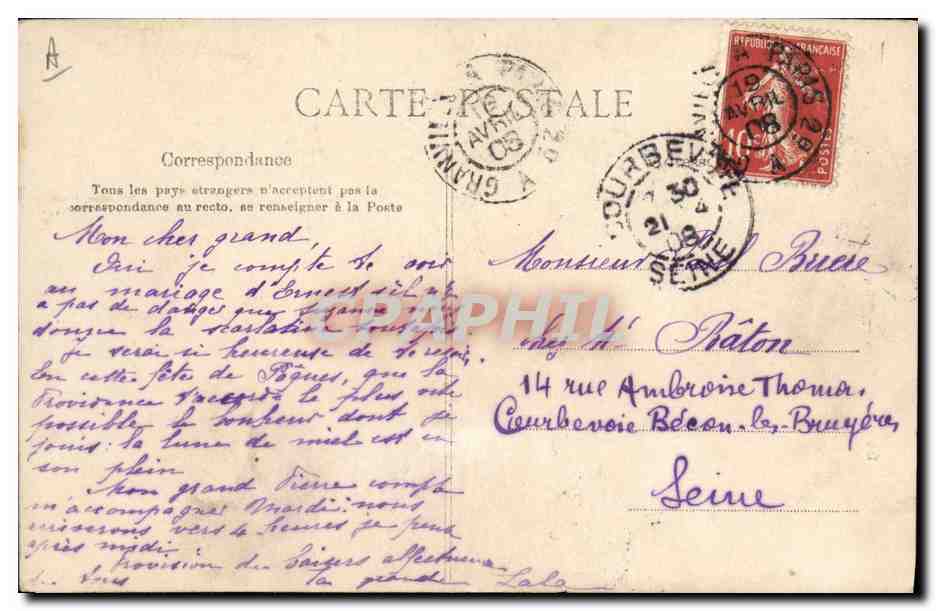 A
CARTE POSTALE
Correspondance
Tous les pays étrangers n'acceptent pas la
correspondance au recto, se renseigner à la Poste
Mon cher grand,
je compte te voir
au mariage d'Ernest s'il n'y
a pas de danger que
donne la scarlatine
Je serai si heureuse de te revoir
En cette fête de Pâques, que la
Providence t'accorde le plus vite
possible le bonheur dont je
jouis: la lune de miel est en
son plein
Mon grand Pierre compte
m'accompagner Mardi: nous
arriverons vers 4 heures je peux
après midi
Provision de baisers affectueux
de tous la grande Lala
GRANVILLE A PARIS 2°
AVRIL
08
REPUBLIQUE FRANÇAISE
10
POSTES
A PARIS 2°
19
AVRIL
08
COURBEVOIE
30
21 4
08
SEINE
Monsieur Brière
chez Mr Râton
14 rue Ambroise Thomas
Courbevoie Bécon-les-Bruyères
Seine
CPAPHIL